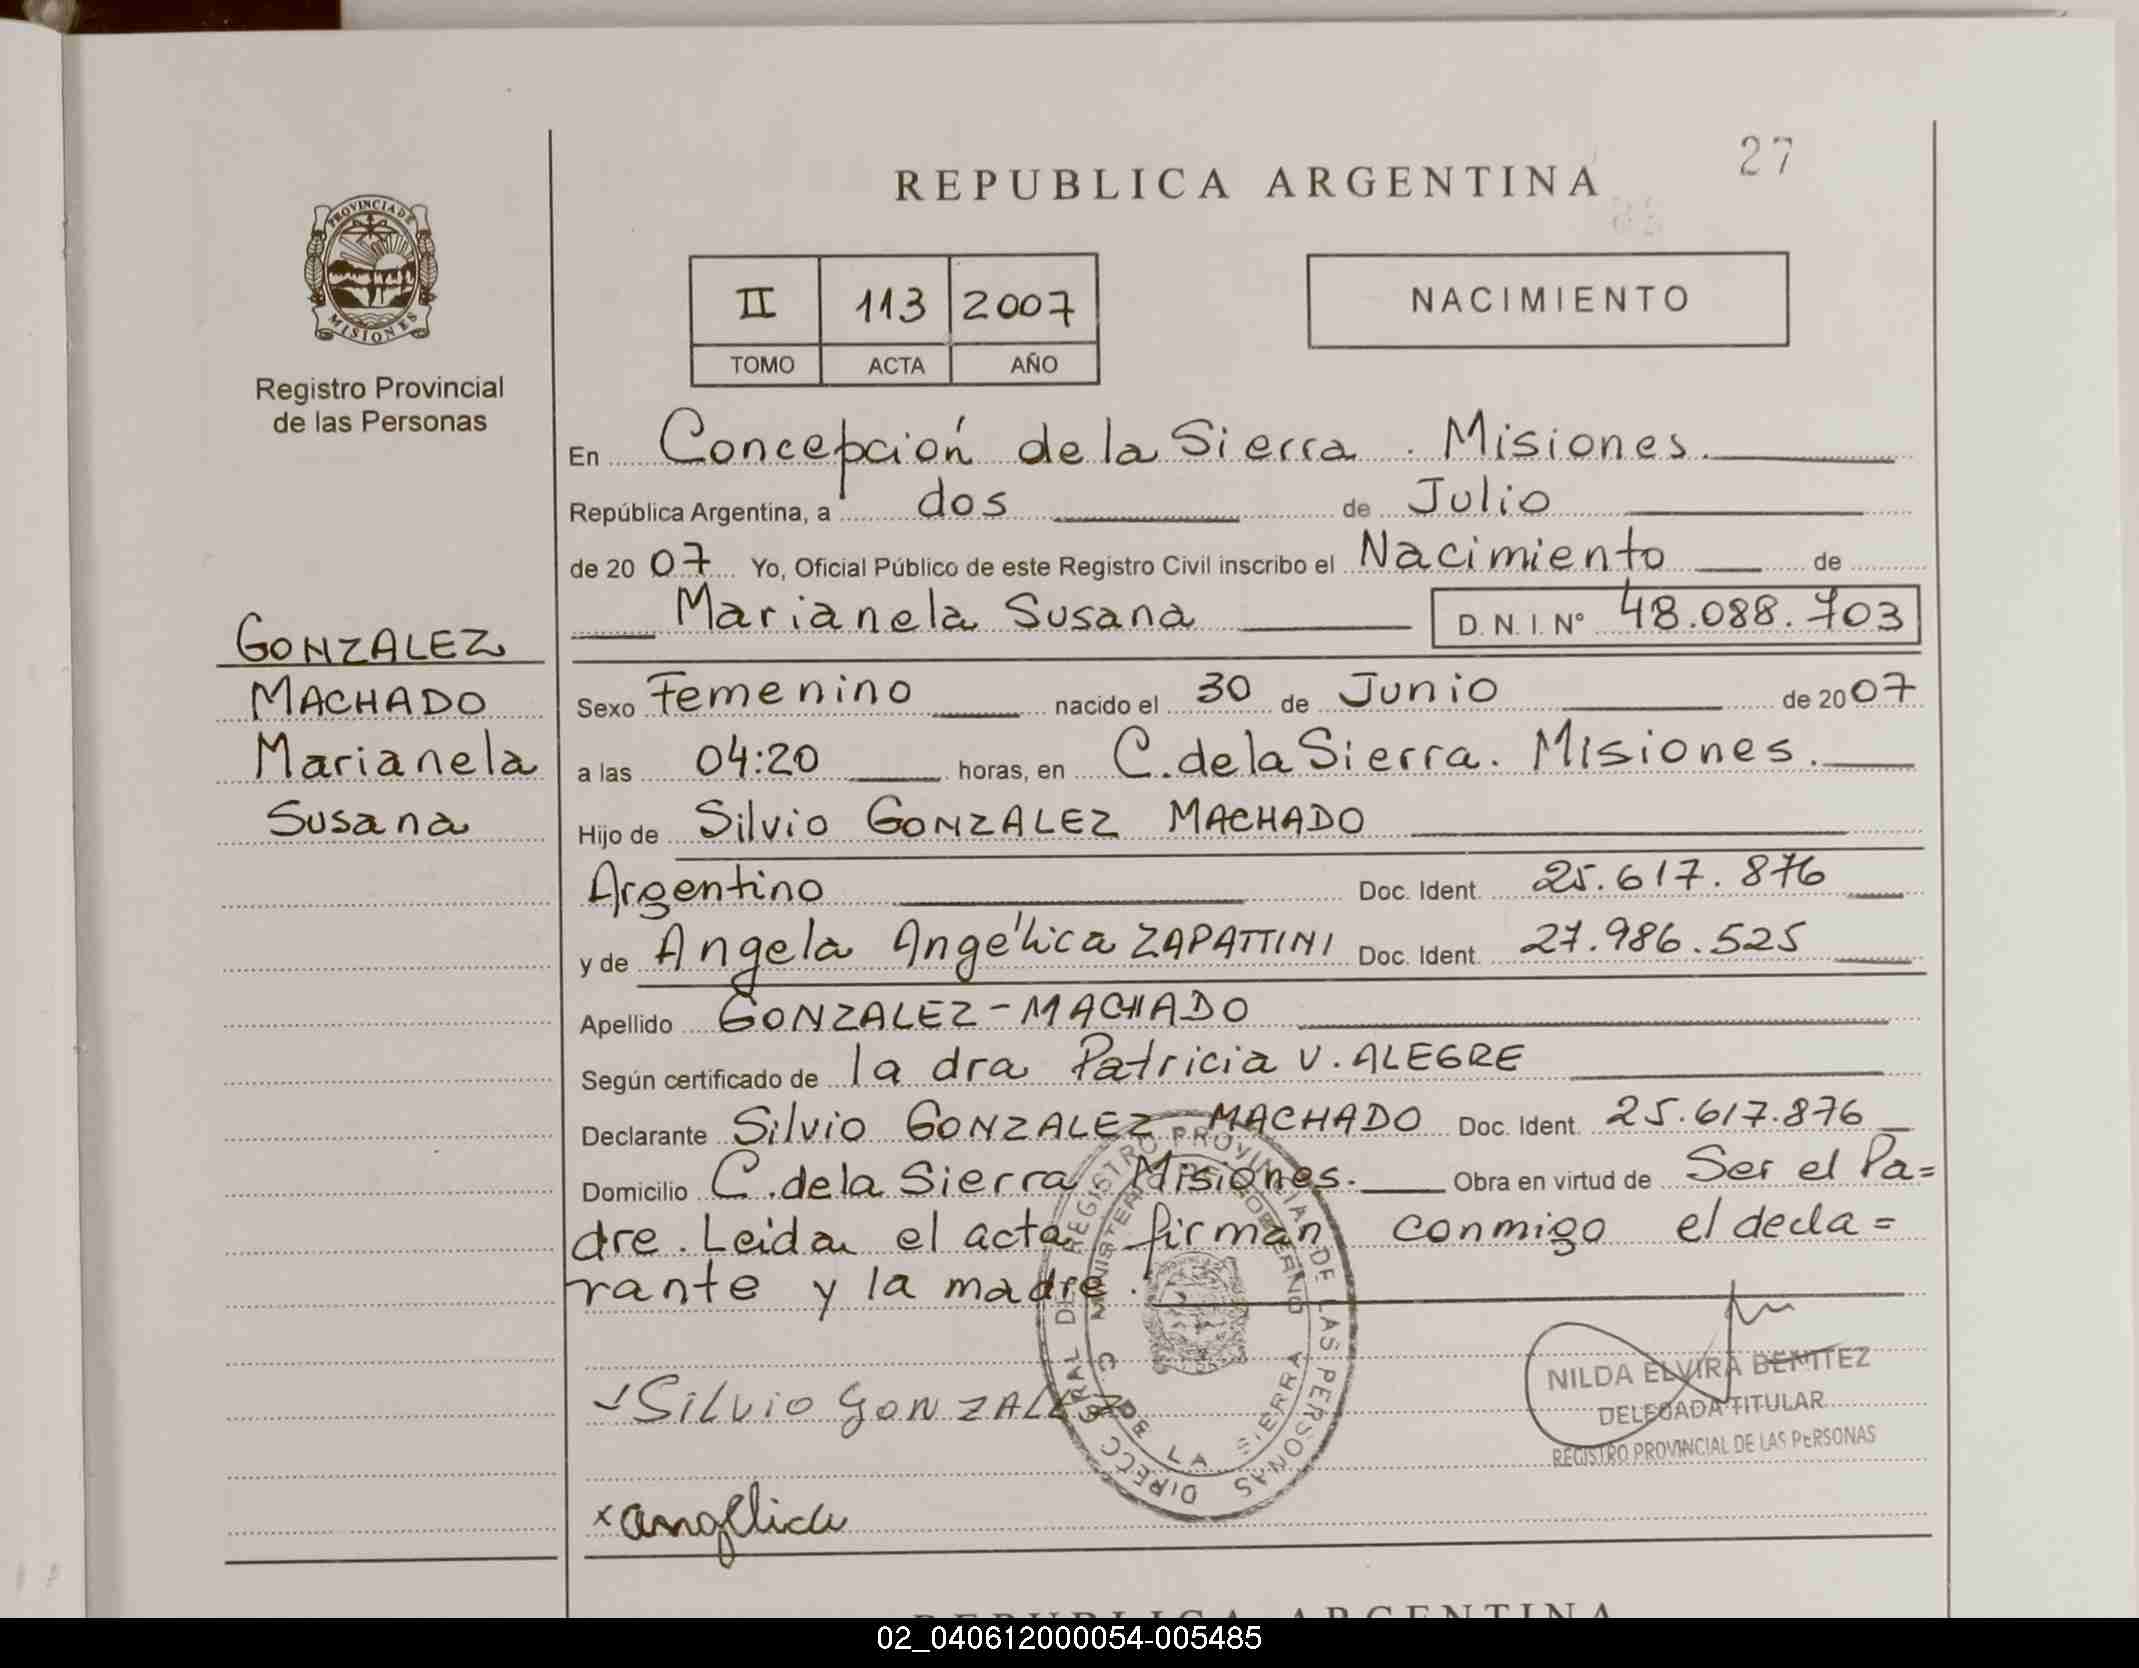 27
REPUBLICA ARGENTINA
PROVINCIA DE
MISIONES
Registro Provincial
de las Personas
II 113 2007
TOMO ACTA AÑO
NACIMIENTO
En Concepción de la Sierra. Misiones.
República Argentina, a dos de Julio
de 2007 Yo, Oficial Público de este Registro Civil inscribo el Nacimiento de
Marianela Susana D.N.I. Nº 48.088.703
GONZALEZ
MACHADO
Marianela
Susana
Sexo Femenino nacido el 30 de Junio de 2007
a las 04:20 horas, en C. de la Sierra. Misiones.
Hijo de Silvio GONZALEZ MACHADO
Argentino Doc. Ident. 25.617.876
y de Angela Angélica ZAPATTINI Doc. Ident. 27.986.525
Apellido GONZALEZ-MACHADO
Según certificado de la dra Patricia V. ALEGRE
Declarante Silvio GONZALEZ MACHADO Doc. Ident. 25.617.876
Domicilio C. de la Sierra Misiones. Obra en virtud de Ser el Pa=
dre. Leida el acta firman conmigo el decla=
rante y la madre.
DIRECC GRAL DE REGISTRO PROVINCIAL DE LAS PERSONAS
MINISTERIO DE GOBIERNO
C. DE LA SIERRA
Silvio GONZALEZ
x angelica
NILDA ELVIRA BENITEZ
DELEGADA TITULAR
REGISTRO PROVINCIAL DE LAS PERSONAS
REPUBLICA ARGENTINA
02_040612000054-005485